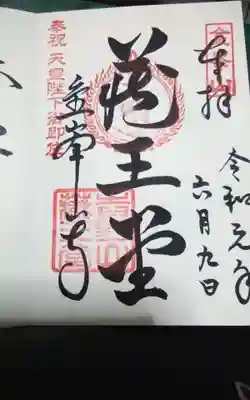 奉拝
令和元年
六月九日
蔵王堂
奉祝 天皇陛下御即位
金峯山寺